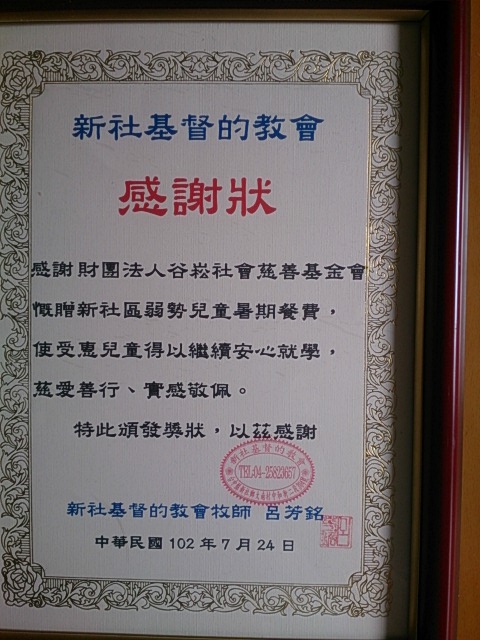 新社基督的教會
感謝狀
感謝財團法人谷崧社會慈善基金會
慨贈新社區弱勢兒童暑期餐費，
使受惠兒童得以繼續安心就學，
慈愛善行、實感敬佩。
特此頒發獎狀，以茲感謝
新社基督的教會
TEL:04-25823657
新社基督的教會牧師 呂芳銘
中華民國 102 年 7 月 24 日